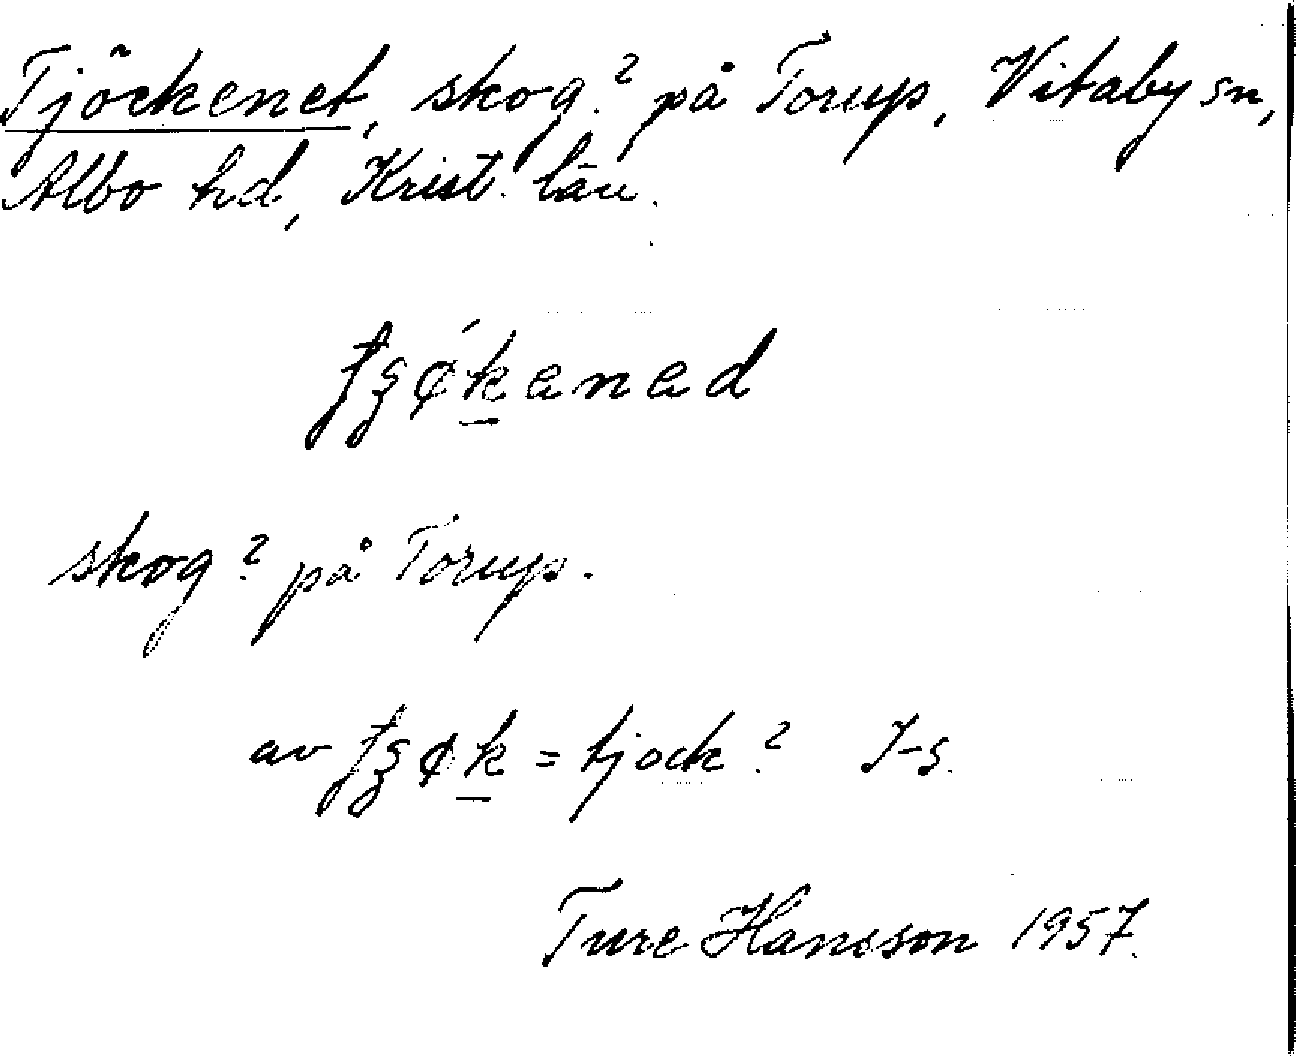 Tjöckenet, skog? på Torup, Vitaby sn,
Albo hd, Krist. län.
skog? på Torup.
av = tjock? I-s.
Ture Hansson 1957.